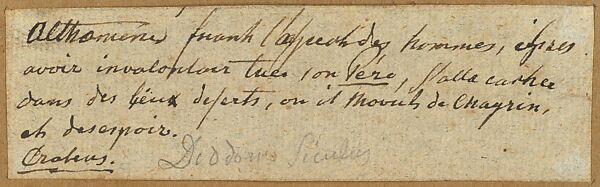 Althamene fuiant l'aspect des hommes, apres
avoir involontair tué son Père, s'alla cacher
dans des lieux deserts, ou il Mourut de Chagrin,
et desespoir.
Crateus. Diodore Siculus